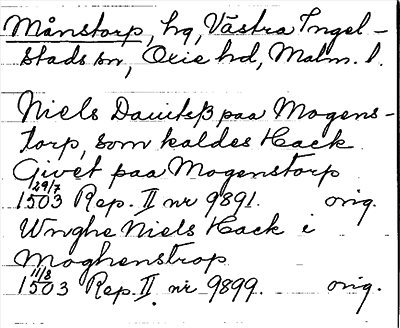 Månstorp, hg, Västra Ingel-
stads sn, Oxie hd, Malm. l.
Niels Dauitsß paa Mogens-
torp, som kaldes Hack
Givet paa Mogenstorp
29/7
1503 Rep. II nr 9891. orig.
Unghe Niels Hack i
Moghenstrop
11/8
1503 Rep. II nr 9899. orig.